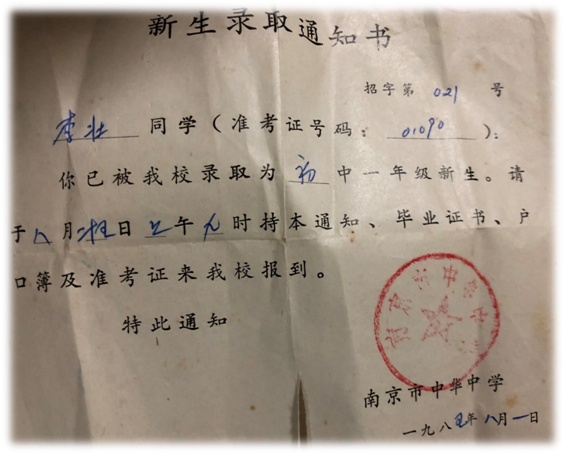 新生录取通知书
招字第 021 号
李壮 同学（准考证号码：01090）：
你已被我校录取为 初 中一年级新生。请
于八月 日 上午 九时持本通知、毕业证书、户
口簿及准考证来我校报到。
特此通知
南京市中华中
南京市中华中学
一九八五年八月一日